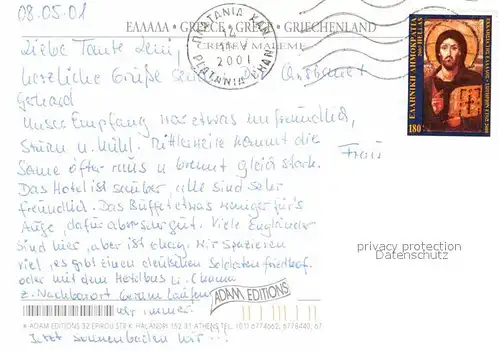 08.05.01
ΕΛΛΑΔΑ • GREECE • GRECE • GRIECHENLAND
Liebe Tante Leni,
CRETE MALEME
herzliche Grüße
Gerhard
Unser Empfang war etwas unfreundlich,
Sturm u. kühl. Mittlerweile kommt die
Sonne öfter raus u brennt gleich stark.
Das Hotel ist sauber, alle sind sehr
freundlich. Das Büffet etwas weniger für's
Auge dafür aber sehr gut. Viele Engländer
sind hier, aber ist okay. Wir spazieren
viel, es gibt einen deutschen Soldatenfriedhof.
oder mit dem Hotelbus n. Chania
z. Nachbarort laufen
wir immer.
Jetzt sonnenbaden wir...!
ΠΛΑΤΑΝΙΑ ΧΑΝ
2001
PLATANIA CHAN
ΕΛΛΗΝΙΚΗ ΔΗΜΟΚΡΑΤΙΑ
HELLAS
180
Frau
privacy protection
Datenschutz
ADAM EDITIONS
ADAM EDITIONS 32 EPIROU STR K. HALANDRI 152 31 ATHENS TEL. (01) 6774662, 6778440, 67